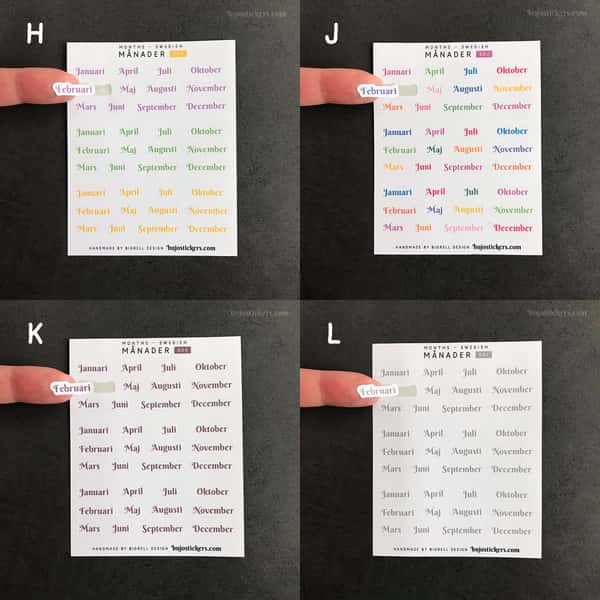 H
bujostickers.com
MONTHS - SWEDISH
MÅNADER
Januari April Juli Oktober
Februari Maj Augusti November
Mars Juni September December
Januari April Juli Oktober
Februari Maj Augusti November
Mars Juni September December
Januari April Juli Oktober
Februari Maj Augusti November
Mars Juni September December
HANDMADE BY BIGRELL DESIGN bujostickers.com
J
bujostickers.com
MONTHS - SWEDISH
MÅNADER
Januari April Juli Oktober
Februari Maj Augusti November
Mars Juni September December
Januari April Juli Oktober
Februari Maj Augusti November
Mars Juni September December
Januari April Juli Oktober
Februari Maj Augusti November
Mars Juni September December
HANDMADE BY BIGRELL DESIGN bujostickers.com
K
bujostickers.com
MONTHS - SWEDISH
MÅNADER
Januari April Juli Oktober
Februari Maj Augusti November
Mars Juni September December
Januari April Juli Oktober
Februari Maj Augusti November
Mars Juni September December
Januari April Juli Oktober
Februari Maj Augusti November
Mars Juni September December
HANDMADE BY BIGRELL DESIGN bujostickers.com
L
bujostickers.com
MONTHS - SWEDISH
MÅNADER
Januari April Juli Oktober
Februari Maj Augusti November
Mars Juni September December
Januari April Juli Oktober
Februari Maj Augusti November
Mars Juni September December
Januari April Juli Oktober
Februari Maj Augusti November
Mars Juni September December
HANDMADE BY BIGRELL DESIGN bujostickers.com